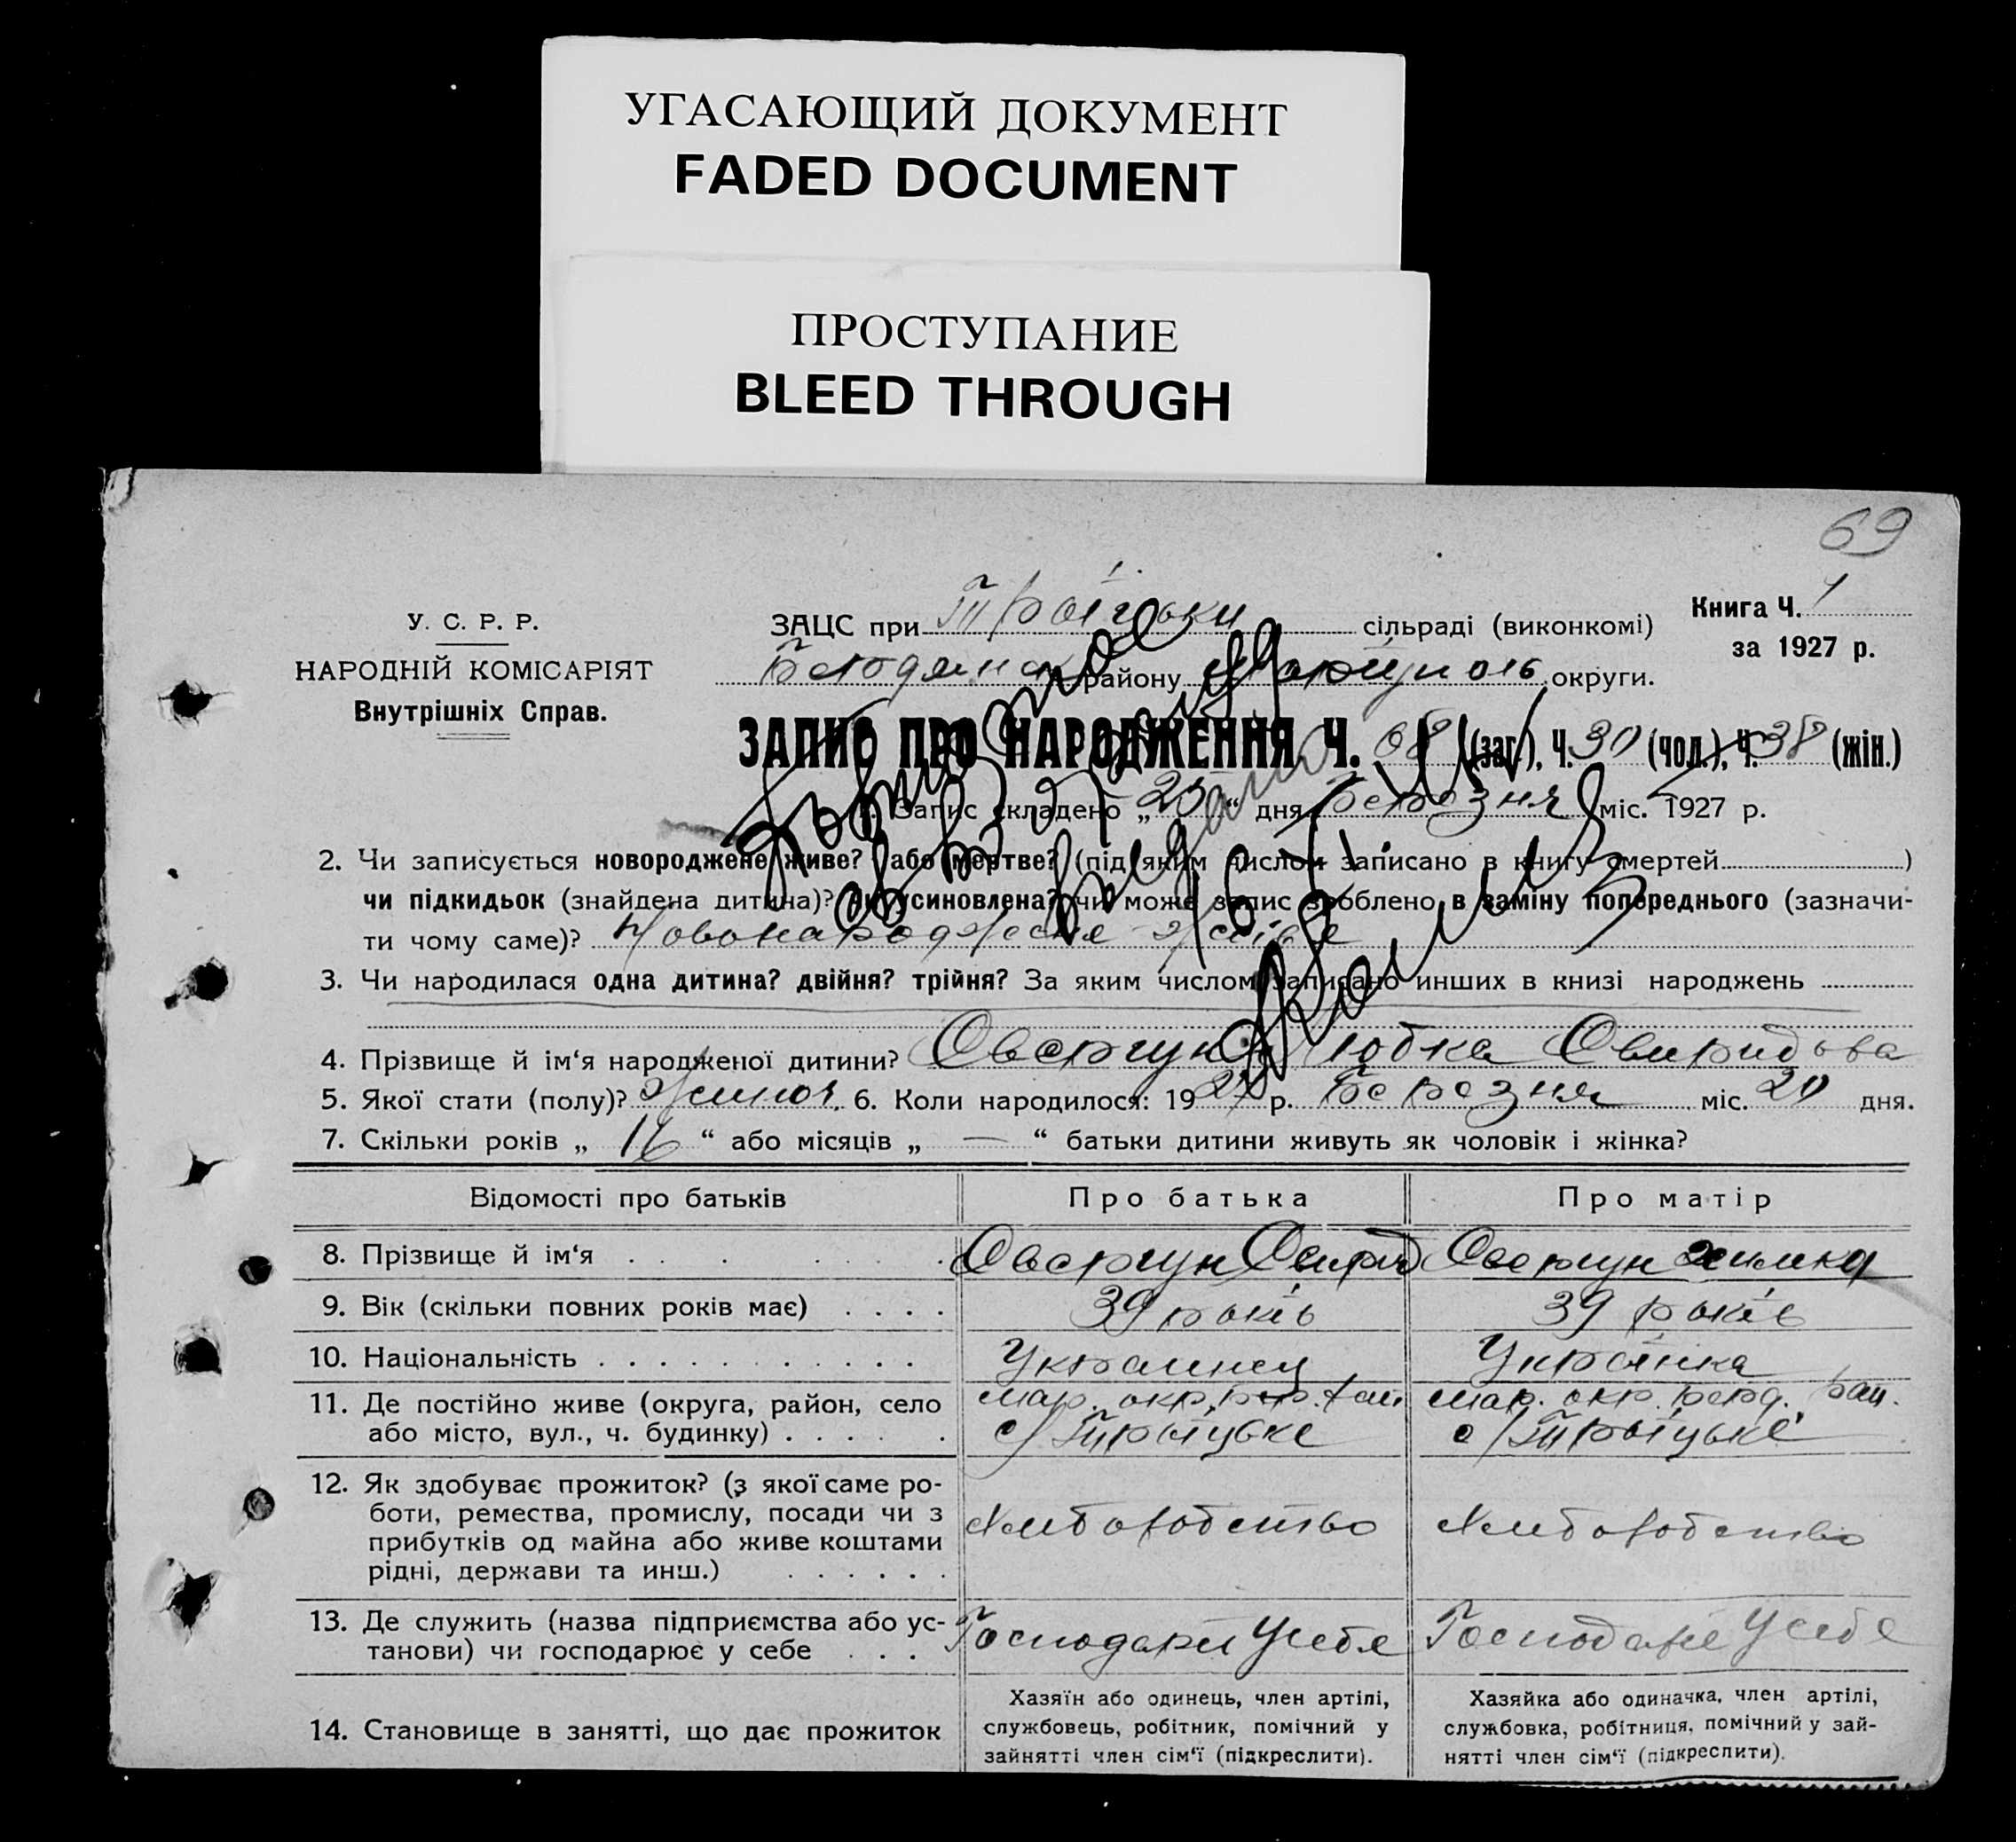 УГАСАЮЩИЙ ДОКУМЕНТ
FADED DOCUMENT
ПРОСТУПАНИЕ
BLEED THROUGH
69
У. С. Р. Р.
НАРОДНІЙ КОМІСАРІЯТ
Внутрішніх Справ.
Книга Ч. 1
за 1927 р.
ЗАЦС при Троїцьки сільраді (виконкомі)
району Маріуполь округи.
ЗАПИС ПРО НАРОДЖЕННЯ Ч. 68 (заг.), Ч. 30 (чол.), Ч. 38 (жін.)
Запис складено „25“ дня Березня міс. 1927 р.
2. Чи записується новороджене живе? або мертве? (під яким числом записано в книгу смертей )
чи підкидьок (знайдена дитина)? чи усиновлена? чи може запис зроблено в заміну попереднього (зазначи-
ти чому саме)? Новонароджене живе
3. Чи народилася одна дитина? двійня? трійня? За яким числом записано инших в книзі народжень
4. Прізвище й ім‘я народженої дитини? Овергун Любка Свиридова
5. Якої стати (полу)? Жиноч. 6. Коли народилося: 1927 р. Березня міс. 20 дня.
7. Скільки років „ 16 “ або місяців „ — “ батьки дитини живуть як чоловік і жінка?
Відомості про батьків Про батька Про матір
8. Прізвище й ім‘я Овергун Свирид Овергун
9. Вік (скільки повних років має) 39 років 39 років
10. Національність Украинец Украінка
11. Де постійно живе (округа, район, село мар. окр. мар. окр. берд. рай.
або місто, вул., ч. будинку) с/Троіцьке с/Троіцьке
12. Як здобуває прожиток? (з якої саме ро-
боти, ремества, промислу, посади чи з
прибутків од майна або живе коштами
рідні, держави та инш.)
Хлиборобство Хлиборобство
13. Де служить (назва підприємства або ус-
танови) чи господарює у себе
Господарс Усебе Господарє Усебе
14. Становище в занятті, що дає прожиток
Хазяїн або одинець, член артілі,
службовець, робітник, помічний у
зайнятті член сім‘ї (підкреслити).
Хазяйка або одиначка, член артілі,
службовка, робітниця, помічний у зай-
нятті член сім‘ї (підкреслити).